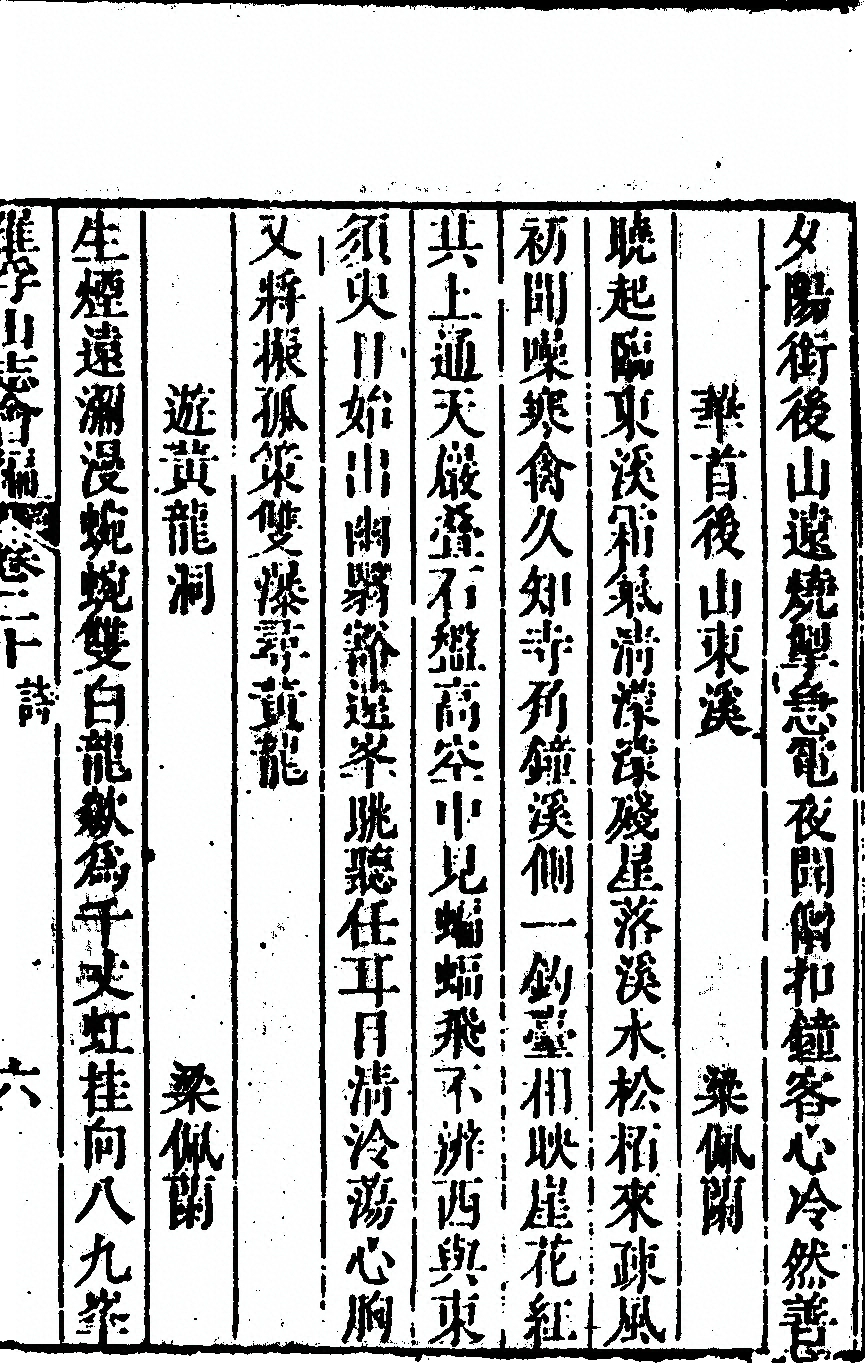 夕陽銜後山遠燒掣急電夜聞僧扣鐘客心冷然善
華首後山東溪　梁佩蘭
曉起臨東溪霜氣淸濛濛殘星落溪水松栢來疎風
初聞噪寒禽久知寺殿鐘溪側一釣臺相映崖花紅
共上通天巖疊石盤高空中見蝙蝠飛不辨西與東
須臾日始出幽翳豁遠峯眺聽任耳目淸泠蕩心胸
又將振孤策雙瀑尋黃龍
遊黃龍洞　梁佩蘭
生煙遠瀰漫蜿蜿雙白龍歘爲千丈虹挂向八九峯
羅浮山志會編　卷二十　詩　六